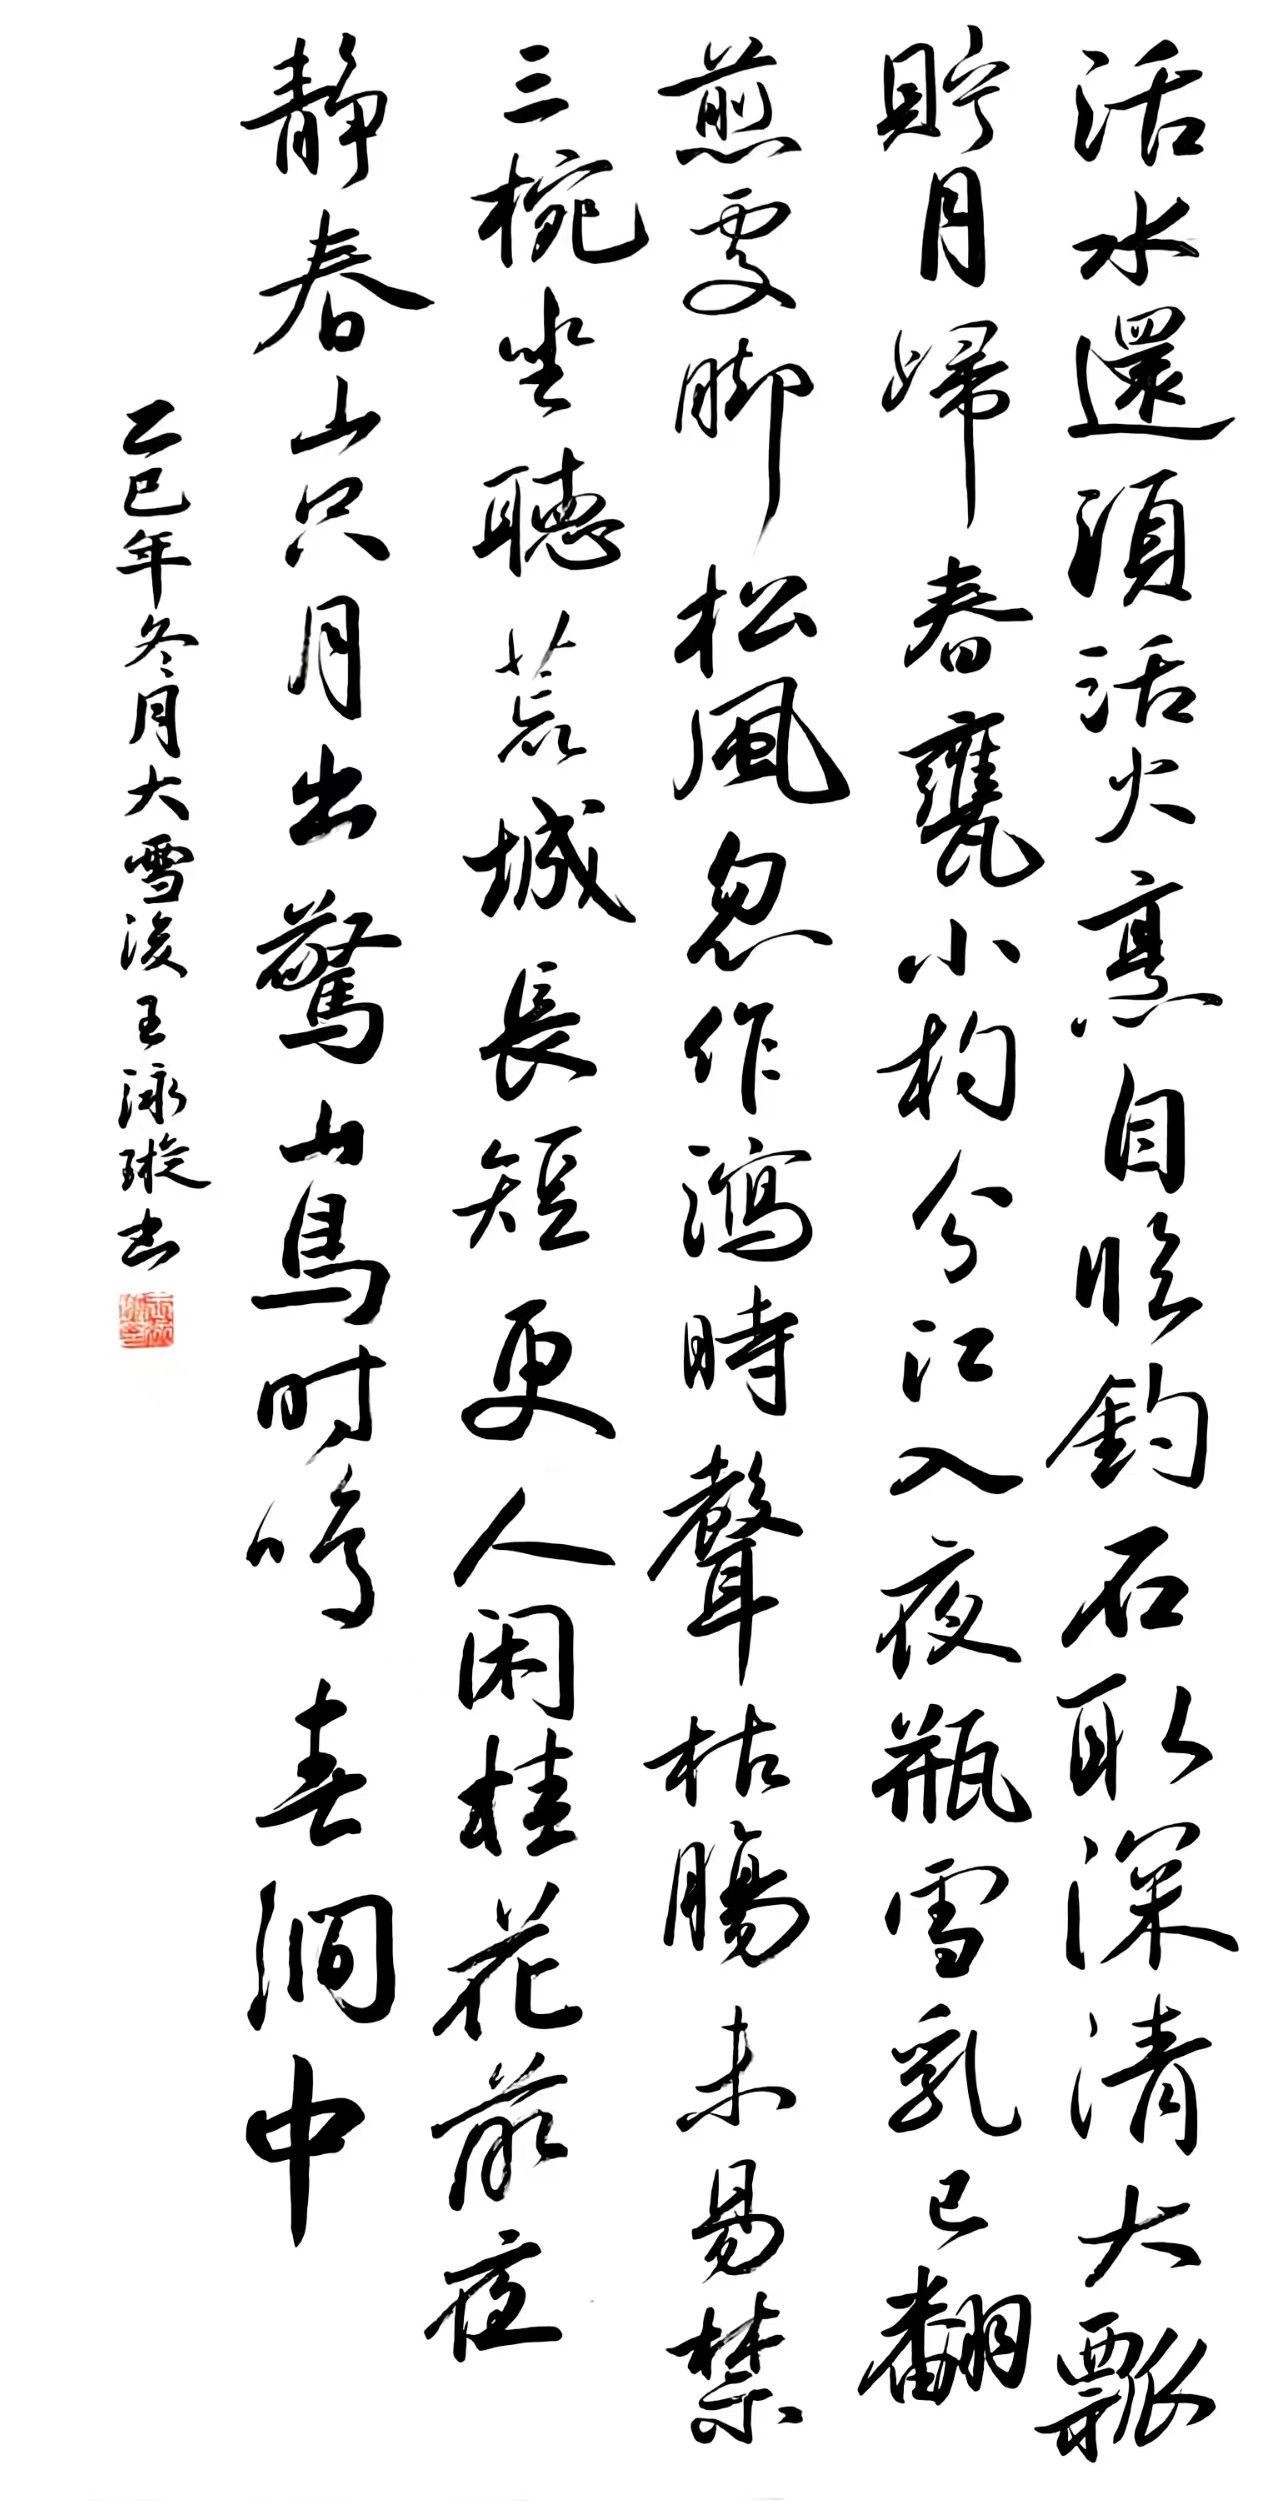 活水還須活火烹自臨釣石取深清大瓢
貯月歸春甕小杓分江入夜瓶雪乳已翻
煎處腳松風忽作瀉時聲枯腸未易禁
三椀坐聽荒城長短更人閑桂花落夜
靜春山空月出驚山鳥時鳴春澗中
乙巳年冬月大雪後王泳書